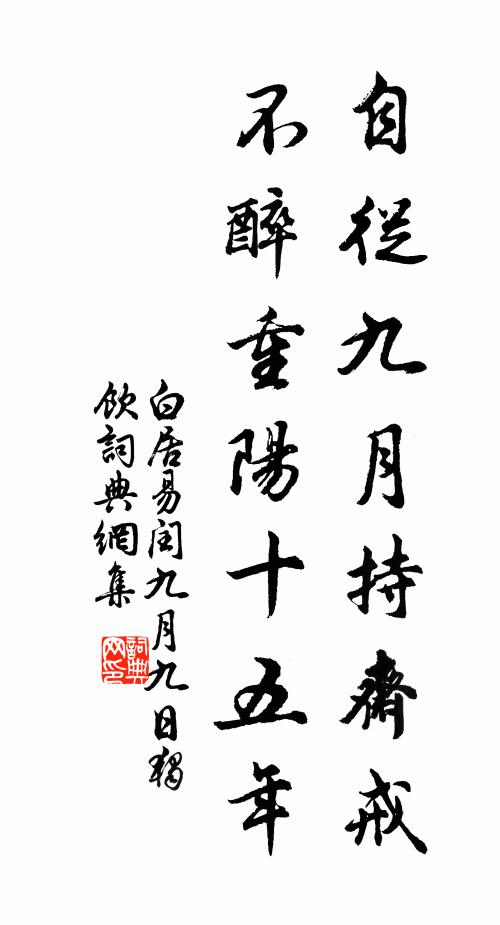 自從九月持齋戒
不醉重陽十五年
白居易閏九月九日獨
飲詞典網集
詞典
网印